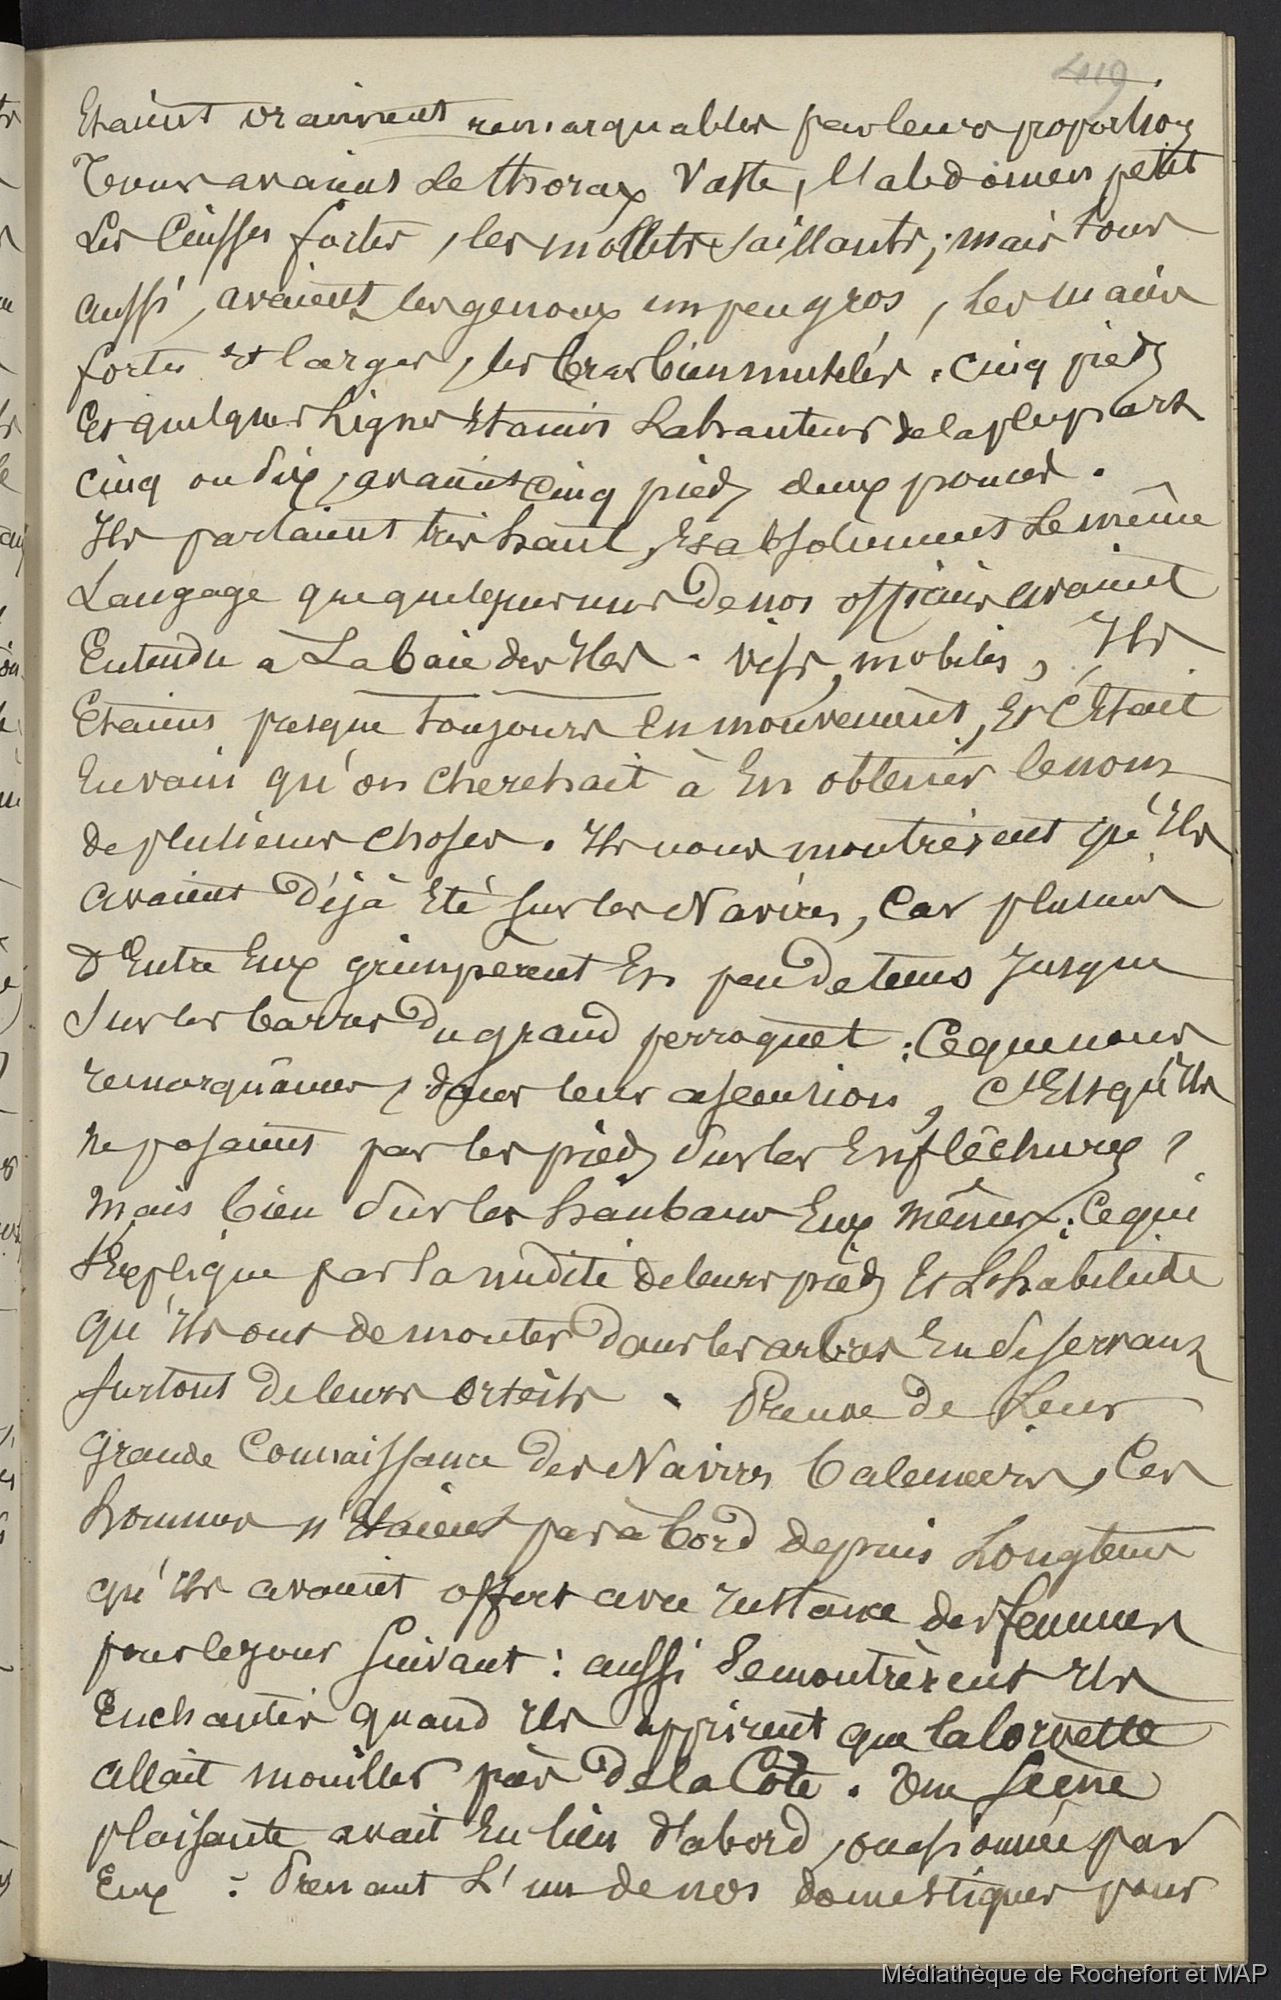 419.
Etaient vraiment remarquables par leurs proportions
Tous avaient le thorax vaste, l'abdomen petit
Les cuisses fortes, les mollets saillants; mais tous
aussi, avaient les genoux un peu gros, les mains
fortes et larges, les bras bien musclés. cinq pieds
Et quelques lignes Etaient La hauteur de la plupart
cinq ou dix, avaient cinq pieds deux pouces.
Ils parlaient très haut, Et absolument Le même
Langage que quelques uns de nos officiers avaient
Entendu à La baie des Iles. vifs, mobiles, Ils
Etaient presque toujours En mouvement, Et C'Etait
En vain qu'on cherchait à En obtenir le nom
de plusieurs choses. Ils nous montrèrent qu'Ils
avaient Déjà Eté sur les Navires, Car plusieurs
D'Entre Eux grimpèrent En peu de tems Jusque
Sur les barres Du grand perroquet; Ce que nous
remarquâmes, dans leur ascension, C'Est qu'Ils
ne posaient pas les pieds Sur les Enfléchures,
mais bien Sur les haubans Eux mêmes; Ce qui
s'Explique par la nudité de leurs pieds Et L'habitude
qu'Ils ont de monter Dans les arbres En Se servant
surtout De leurs orteils. Preuve de Leur
grande Connaissance Des Navires baleiniers, Ces
hommes n'Etaient pas à bord depuis Longtems
qu'Ils avaient offert avec Instance des femmes
pour le jour suivant: aussi Se montrèrent Ils
Enchantés quand Ils apprirent que la Corvette
allait mouiller près De la Côte. Une Scène
plaisante avait Eu lieu d'abord, occasionnée par
Eux: Prenant L'un de nos domestiques pour
Médiathèque de Rochefort et MAP